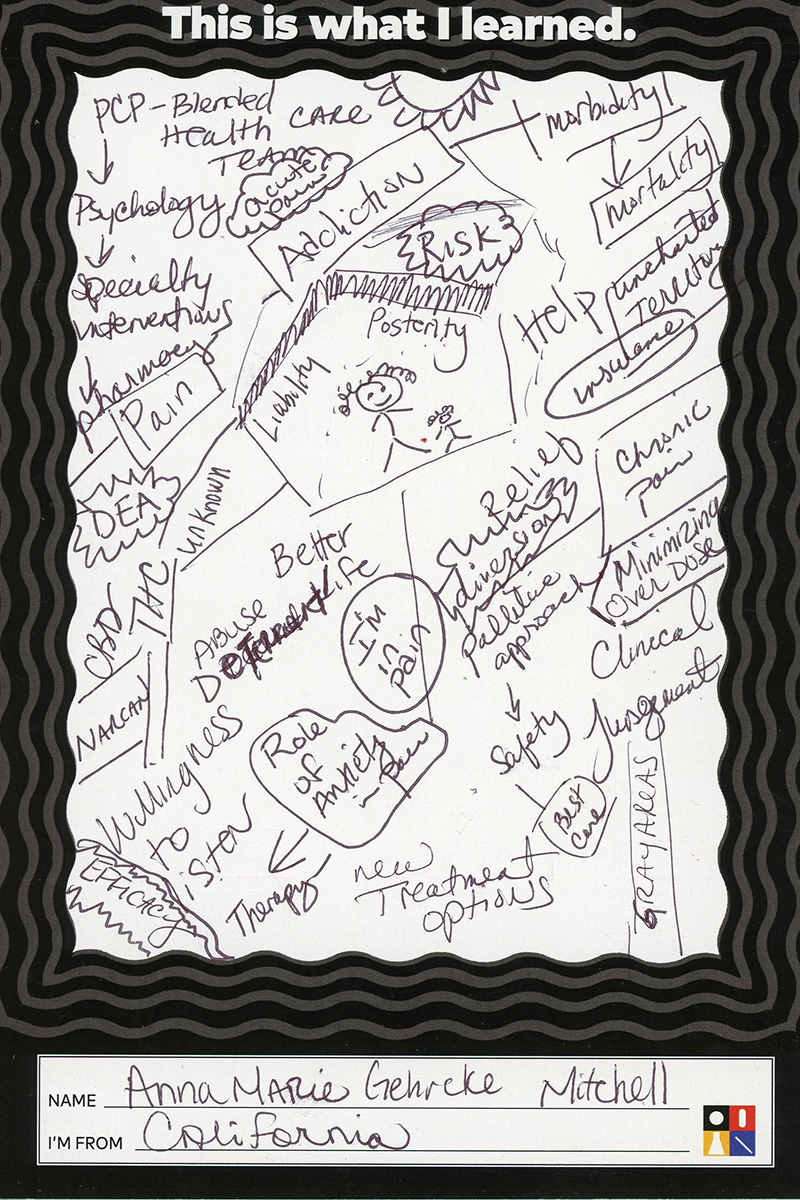 This is what I learned.
PCP - Blended
Health CARE
TEAM
Psychology
Specialty
interventions
pharmacy
Pain
acute
pain
Addiction
RISK
Posterity
Liability
Morbidity
Mortality
uncharted
Territory
Help
insurance
Chronic
pain
Minimizing
Over Dose
DEA
unknown
CBD
THC
NARCAN
Better
Life
ABUSE
DeTerrent
I'm
in
pain
Relief
diversion
Pallitive
approach
Safety
Best
Care
Clinical
Judgement
GRAY AREAS
Role
of
Anxiety
in Pain
Therapy
Willingness
to
listen
EFFICACY
new
Treatment
options
NAME Anna MARie Gehrcke Mitchell
I'M FROM California